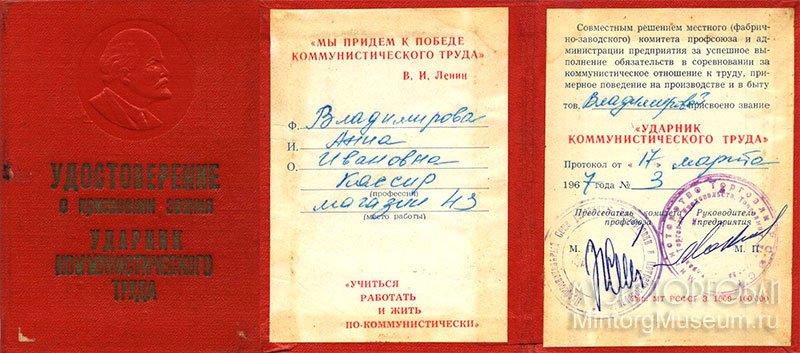 УДОСТОВЕРЕНИЕ
о присвоении звания
УДАРНИК
КОММУНИСТИЧЕСКОГО
ТРУДА
«МЫ ПРИДЕМ К ПОБЕДЕ
КОММУНИСТИЧЕСКОГО ТРУДА»
В. И. Ленин
Ф. Владимирова
И. Анна
О. Ивановна
Кассир
(профессия)
магазин 43
(место работы)
«УЧИТЬСЯ
РАБОТАТЬ
И ЖИТЬ
ПО-КОММУНИСТИЧЕСКИ»
Совместным решением местного (фабрич-
но-заводского) комитета профсоюза и ад-
министрации предприятия за успешное вы-
полнение обязательств в соревновании за
коммунистическое отношение к труду, при-
мерное поведение на производстве и в быту
тов. Владимировой присвоено звание
«УДАРНИК
КОММУНИСТИЧЕСКОГО ТРУДА»
Протокол от «17» марта
1967 года № 3
Председатель комитета профсоюза
Руководитель предприятия
М. П.
МТ РСФСР З. 1000-100000
MintorgMuseum.ru